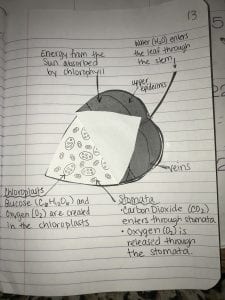 13
Energy from the
Sun absorbed
by chlorophyll
Water (H₂O) enters
the leaf through
the stem
upper
epidermis
veins
Chloroplasts
Glucose (C₆H₁₂O₆) and
Oxygen (O₂) are created
in the chloroplasts
Stomata
• Carbon Dioxide (CO₂)
enters through stomata
• Oxygen (O₂) is
released through
the stomata.